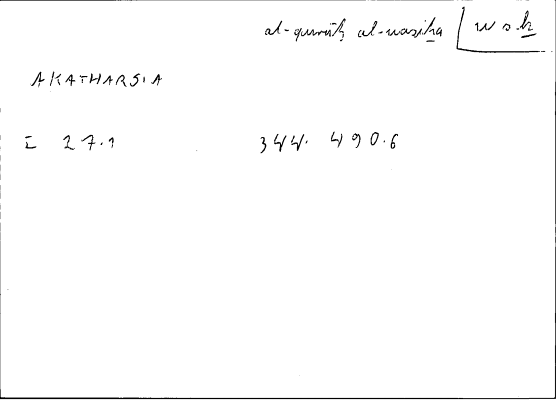 al-qurūḥ al-wasiẖa w s ẖ
AKATHARSIA
I 27.1 344. 490.6